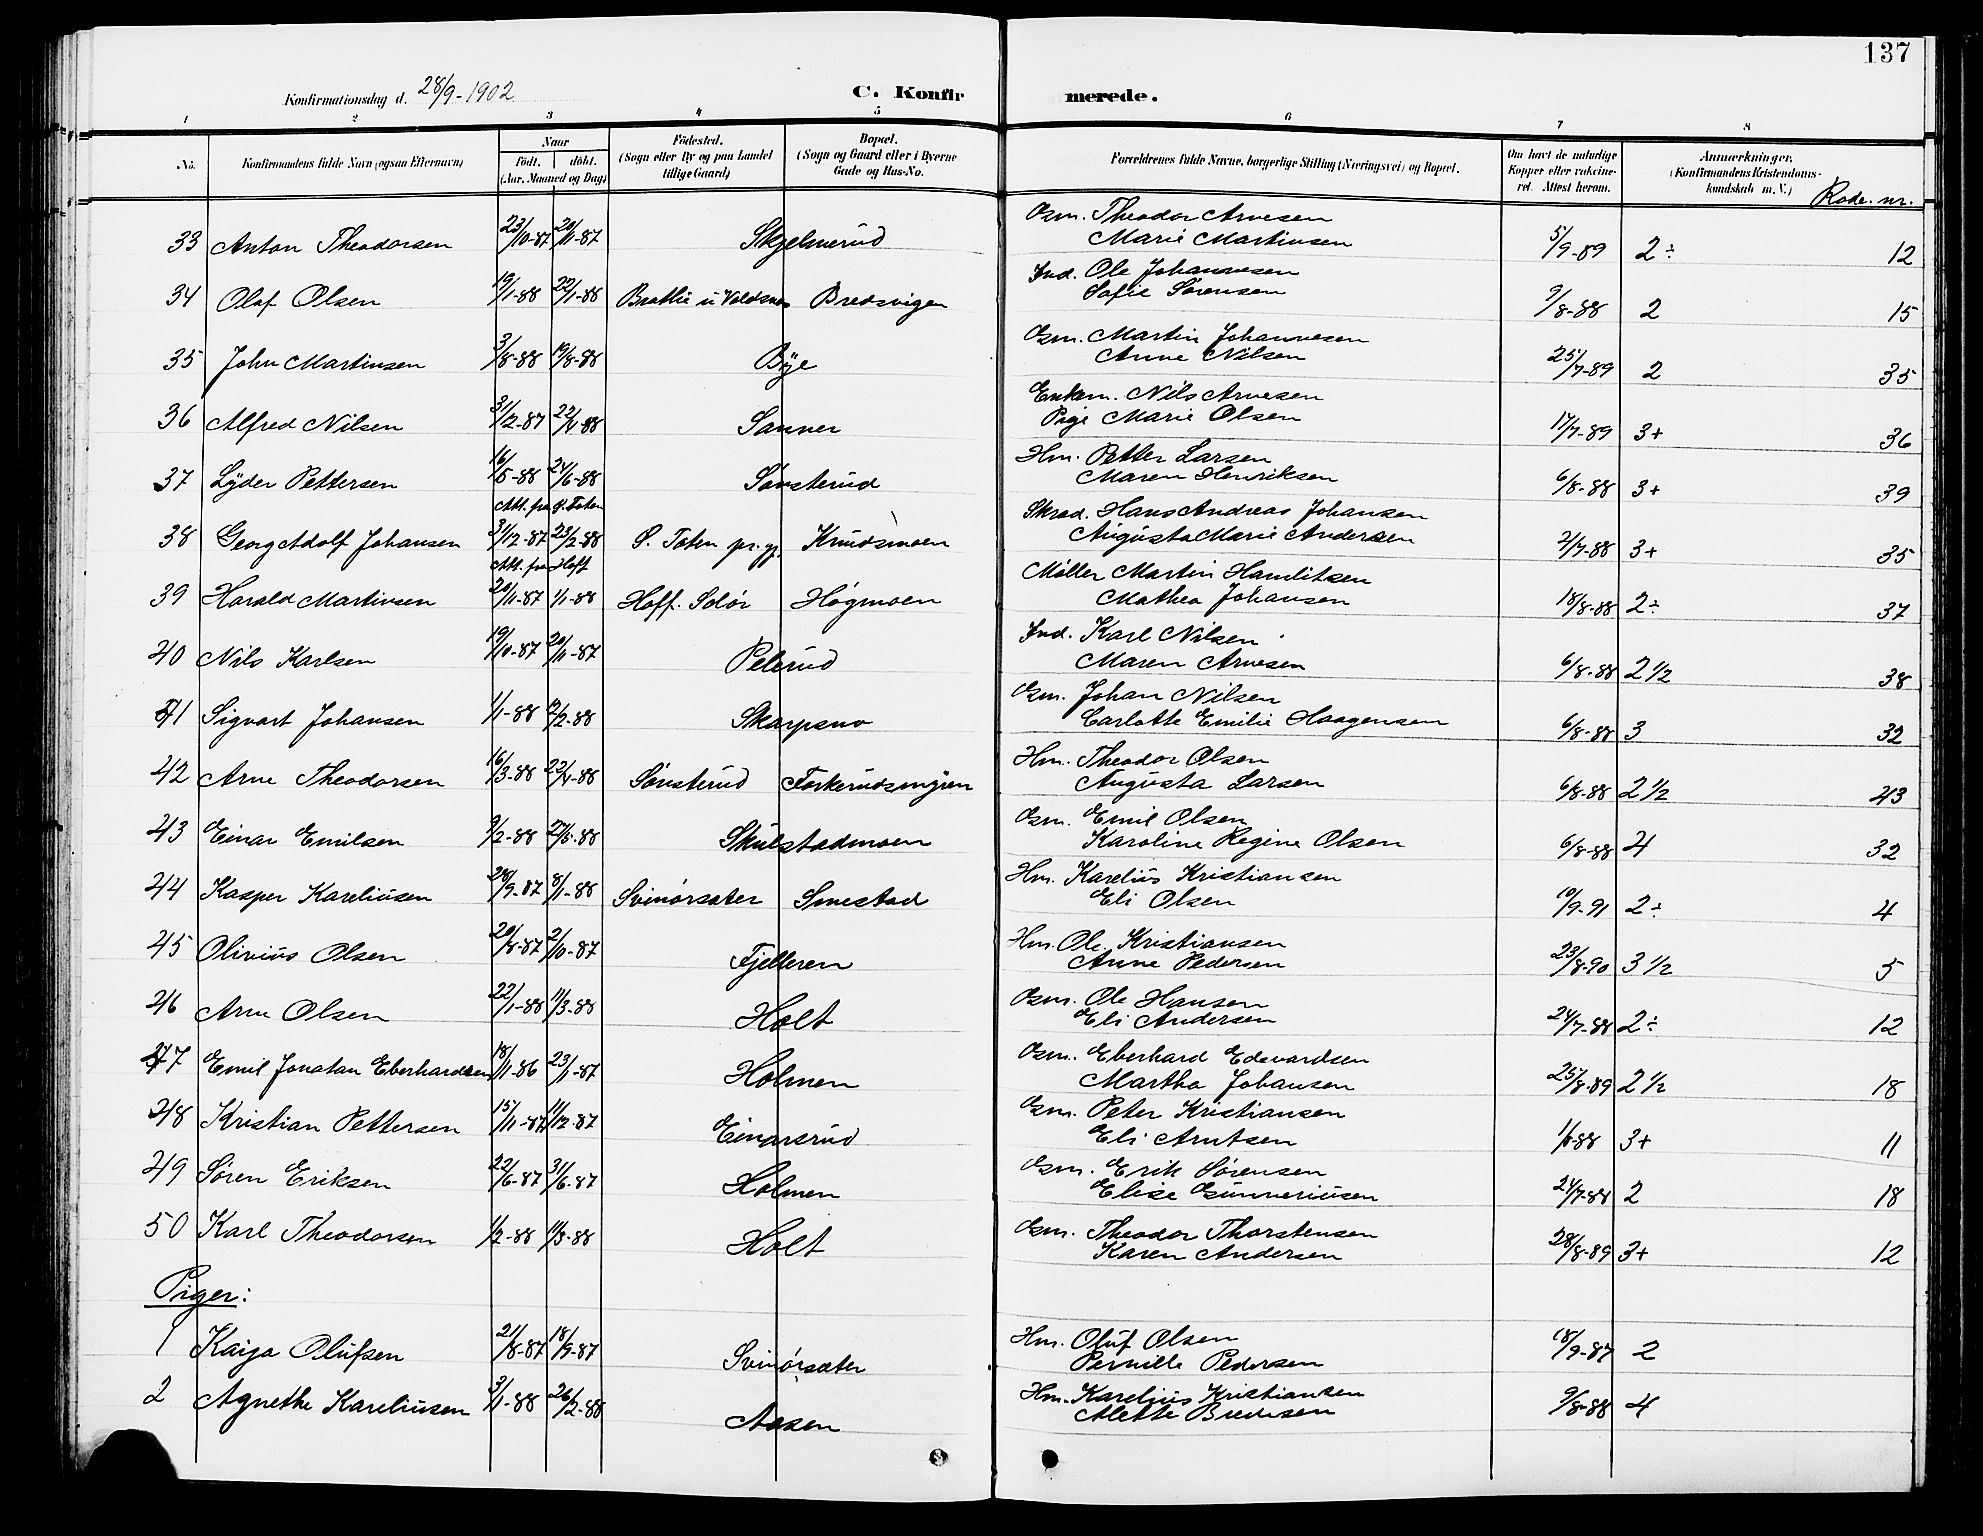 137
Konfirmationsdag d. 28/9-1902 C. Konfir merede.
1 2 3 4 5 6 7 8
No. Konfirmandens fulde Navn (ogsaa Efternavn) Naar født. døbt. (Aar, Maaned og Dag) Fødested. (Sogn eller By og paa Landet tillige Gaard) Bopæl. (Sogn og Gaard eller i Byerne Gade og Hus-No. Forældrenes fulde Navne, borgerlige Stilling (Næringsvei) og Bopæl. Om havt de naturlige Kopper eller vakcineret. Attest herom. Anmærkninger. (Konfirmandens Kristendomskundskab m. V.) Rode. nr.
33 Anton Theodorsen 23/10-87 20/11-87 Skjelmerud Gsm. Theodor Arnesen 5/9-89 2÷ 12
Marie Martinsen
34 Olaf Olsen 19/1-88 22/1-88 Bredsvigen Ind. Ole Johannesen 9/8-88 2 15
Sofie Sørensen
35 John Martinsen 3/8-88 19/8-88 Bye Gsm. Martin Johannesen 25/7-89 2 35
Anne Nilsen
36 Alfred Nilsen 31/12-87 22/4-88 Sanner Enkem. Nils Arnesen 17/7-89 3+ 36
Pige Marie Olsen
37 Lyder Pettersen 16/5-88 24/6-88 Sønsterud Hm. Petter Larsen 6/8-88 3+ 39
Maren Henriksen
Att. fra Ø. Toten
38 Georg Adolf Johansen 31/12-87 23/2-88 Ø. Toten pr.gj. Knudsmoen Skræd. Hans Andreas Johansen 2/7-88 3+ 35
Augusta Marie Andersen
Att. fra Hoff
39 Harald Martinsen 20/11-87 1/1-88 Hoff. Solør Høgmoen Møller Martin Hamlitsen 18/8-88 2÷ 37
Mathea Johansen
40 Nils Karlsen 19/10-87 20/11-87 Pelerud Ind. Karl Nilsen 6/8-88 2 1/2 38
Maren Arnesen
41 Sigvart Johansen 1/1-88 12/2-88 Skarpsno Gsm. Johan Nilsen 6/8-88 3 32
Carlotte Emilie Haagensen
42 Arne Theodorsen 16/3-88 22/4-88 Sønsterud Forkerudsmyren Hm. Theodor Olsen 6/8-88 2 1/2 43
Augusta Larsen
43 Einar Emilsen 9/2-88 27/5-88 Skulstadmoen Gsm. Emil Olsen 6/8-88 4 32
Karoline Regine Olsen
44 Kasper Kareliusen 28/9-87 8/1-88 Svinørsæter Smestad Hm. Karelius Kristiansen 10/9-91 2÷ 4
Eli Olsen
45 Olivius Olsen 20/8-87 2/10-87 Fjelleren Hm. Ole Kristiansen 23/8-90 3 1/2 5
Anne Pedersen
46 Arne Olsen 22/1-88 11/3-88 Holt Gsm. Ole Hansen 24/7-88 2÷ 12
Eli Andersen
47 Emil Jonatan Eberhardsen 18/11-86 23/1-87 Holmen Gsm. Eberhard Edevardsen 25/8-89 2 1/2 18
Martha Johansen
48 Kristian Pettersen 15/11-87 11/12-87 Einarsrud Gsm. Peter Kristiansen 3+ 11
Eli Arntsen
49 Søren Eriksen 22/6-87 31/6-87 Holmen Gsm. Erik Sørensen 24/7-88 2 18
Elise Gunneriusen
50 Karl Theodorsen 1/2-88 11/3-88 Holt Gsm. Theodor Thorstensen 28/8-89 3+ 12
Karen Andersen
Piger:
1 Kaija Olufsen 21/8-87 18/9-87 Svinørsæter Hm. Oluf Olsen 18/9-87 2
Pernille Pedersen
2 Agnethe Kareliusen 3/1-88 26/2-88 Aasen Hm. Karelius Kristiansen 9/8-88 4
Alette Bredesen